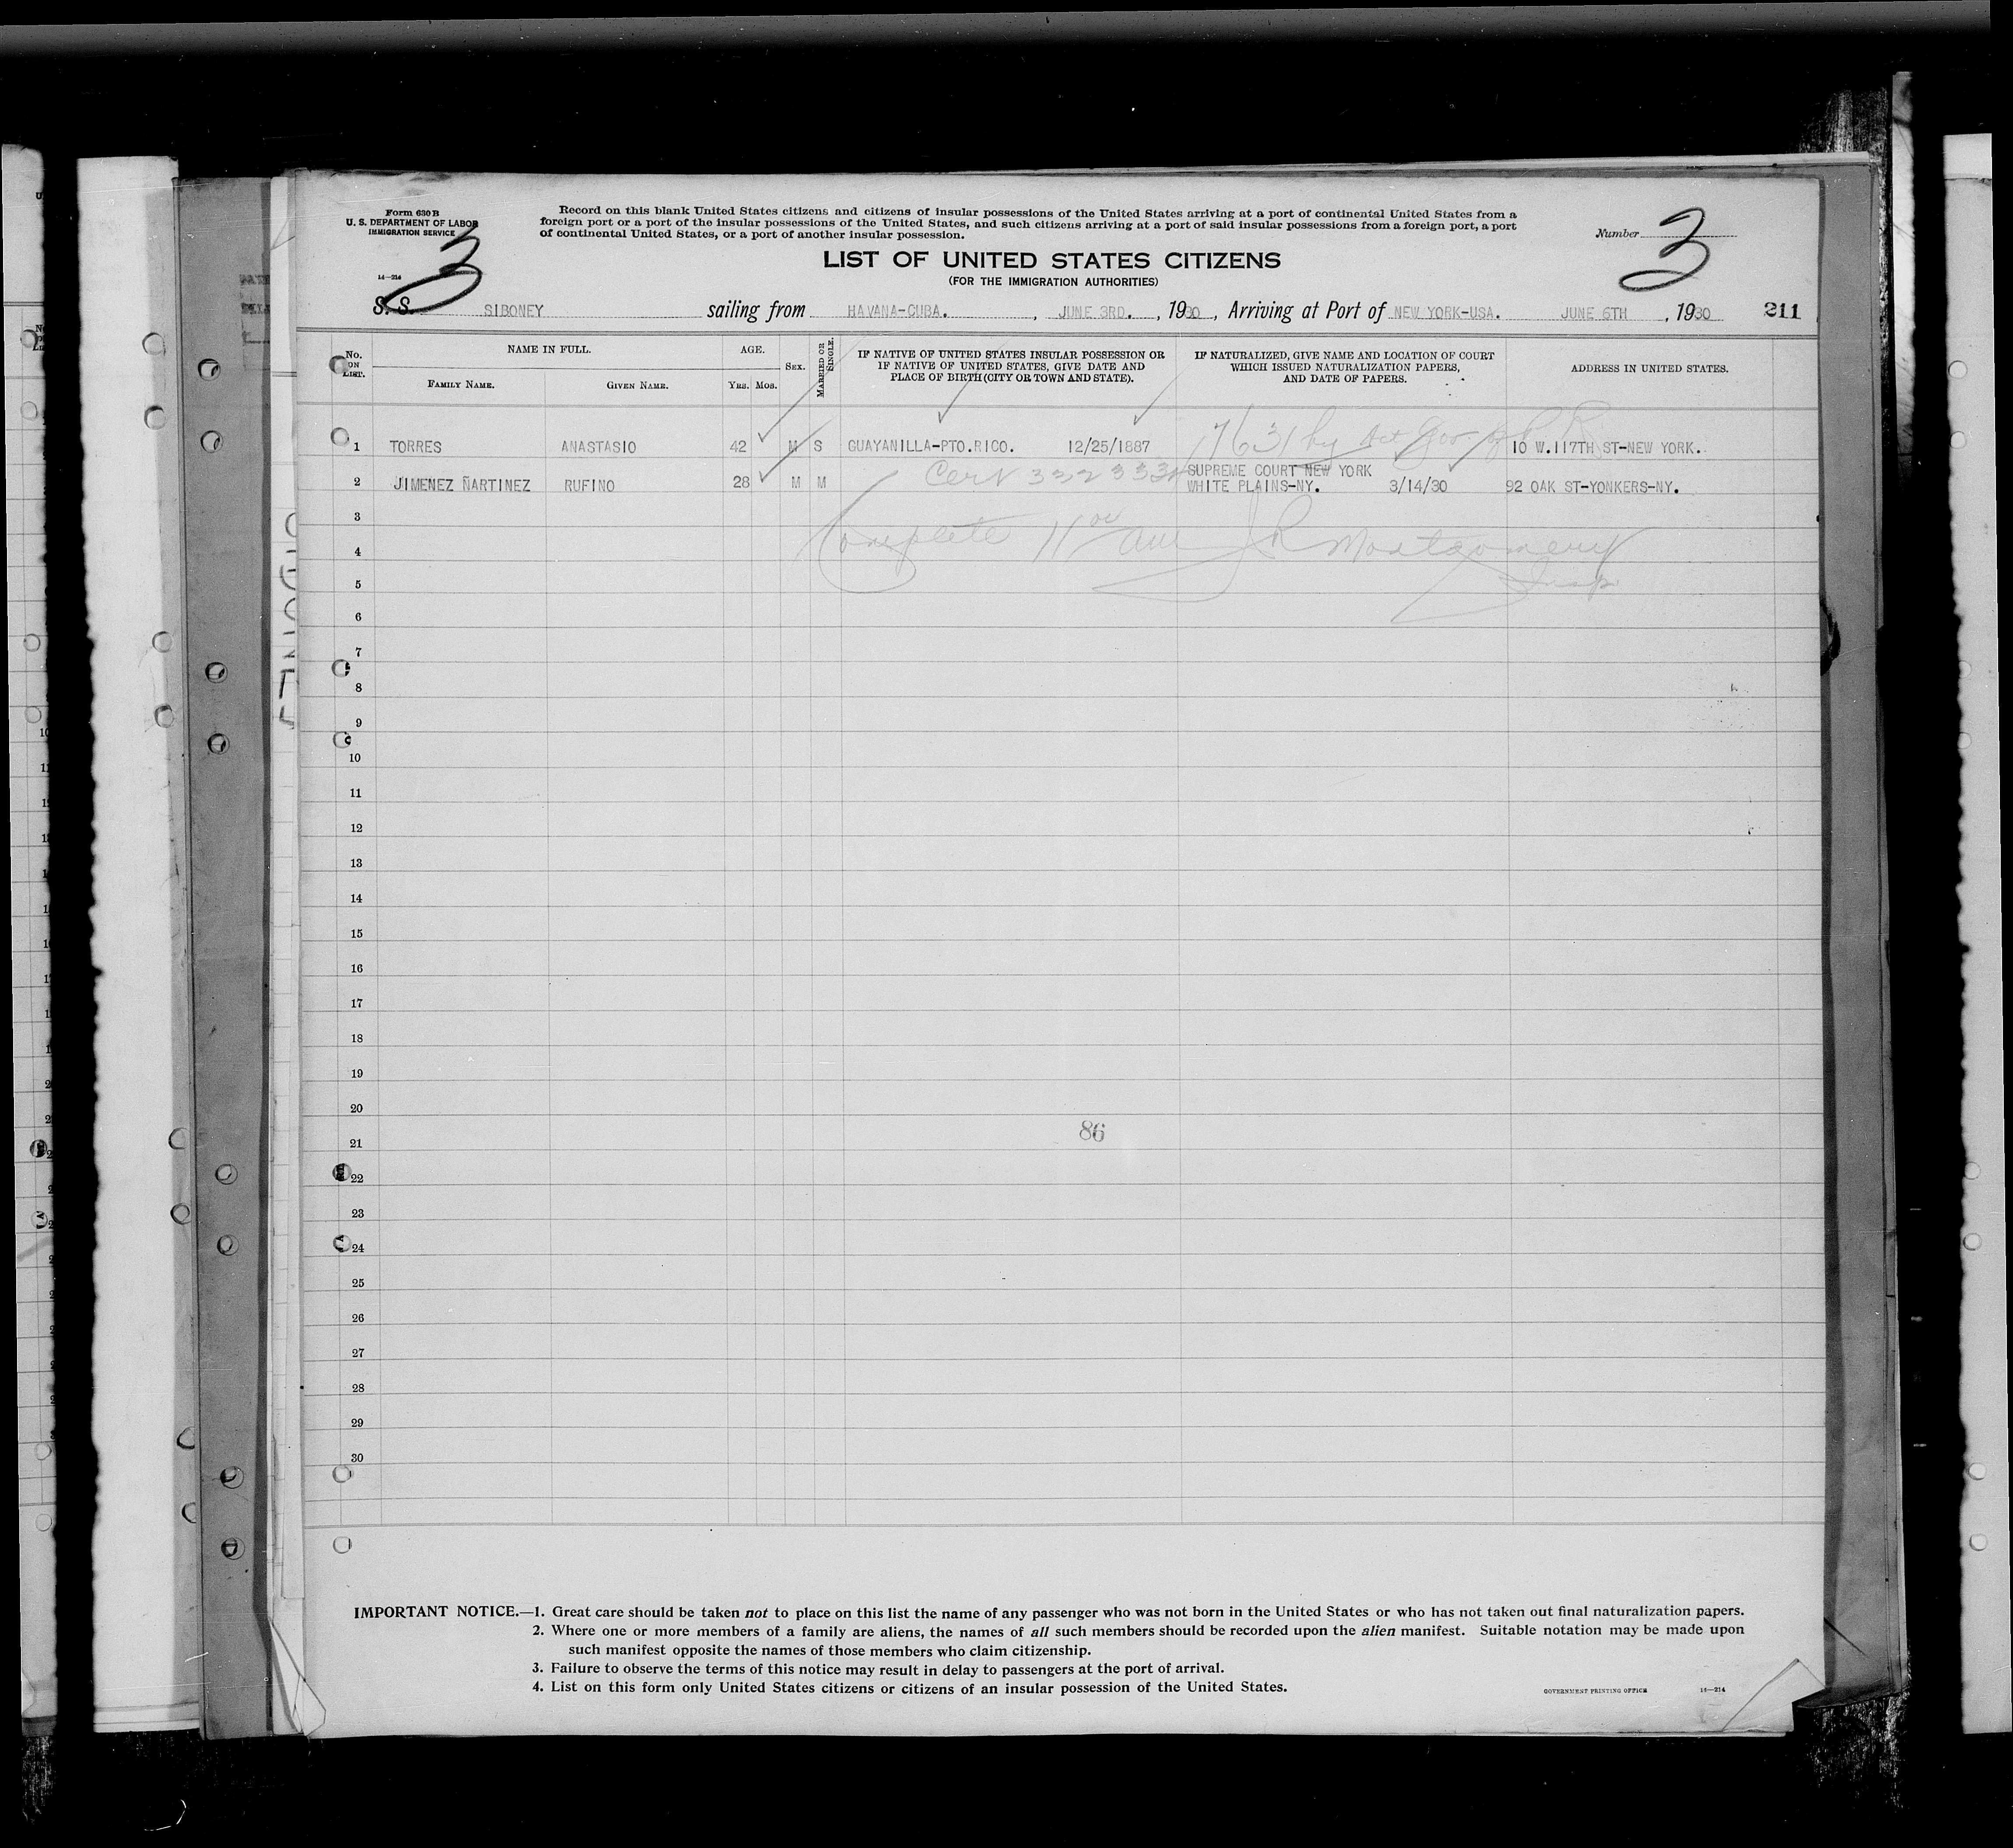 Form 630 B
U. S. DEPARTMENT OF LABOR
IMMIGRATION SERVICE
14—214
3
Record on this blank United States citizens and citizens of insular possessions of the United States arriving at a port of continental United States from a
foreign port or a port of the insular possessions of the United States, and such citizens arriving at a port of said insular possessions from a foreign port, a port
of continental United States, or a port of another insular possession.
Number 3
LIST OF UNITED STATES CITIZENS
(FOR THE IMMIGRATION AUTHORITIES)
S. S. SIBONEY sailing from HAVANA-CUBA. , JUNE 3RD. , 1930 , Arriving at Port of NEW YORK-USA. JUNE 6TH , 1930 211
No. ON LIST. NAME IN FULL. AGE. SEX. MARRIED OR SINGLE. IF NATIVE OF UNITED STATES INSULAR POSSESSION OR IF NATIVE OF UNITED STATES, GIVE DATE AND PLACE OF BIRTH (CITY OR TOWN AND STATE). IF NATURALIZED, GIVE NAME AND LOCATION OF COURT WHICH ISSUED NATURALIZATION PAPERS, AND DATE OF PAPERS. ADDRESS IN UNITED STATES.
FAMILY NAME. GIVEN NAME. YRS. MOS.
1 TORRES ANASTASIO 42 M S GUAYANILLA-PTO.RICO. 12/25/1887 17631 by Act Gov of P R 10 W.117TH ST-NEW YORK.
Cert 3323332 SUPREME COURT NEW YORK
2 JIMENEZ ÑARTINEZ RUFINO 28 M M WHITE PLAINS-NY. 3/14/30 92 OAK ST-YONKERS-NY.
3
Complete 11 00 am J R Montgomery
4
Insp
5
6
7
8
9
10
11
12
13
14
15
16
17
18
19
20
86
21
22
23
24
25
26
27
28
29
30
IMPORTANT NOTICE.—1. Great care should be taken not to place on this list the name of any passenger who was not born in the United States or who has not taken out final naturalization papers.
2. Where one or more members of a family are aliens, the names of all such members should be recorded upon the alien manifest. Suitable notation may be made upon
such manifest opposite the names of those members who claim citizenship.
3. Failure to observe the terms of this notice may result in delay to passengers at the port of arrival.
4. List on this form only United States citizens or citizens of an insular possession of the United States.
GOVERNMENT PRINTING OFFICE 14—214